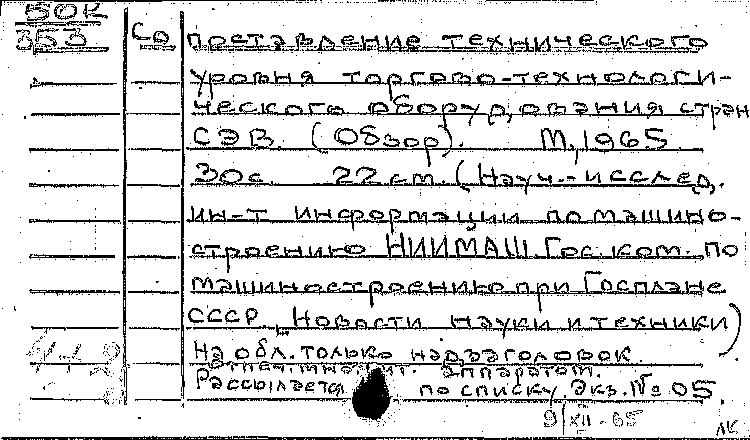 50К
353
Со поставление технического
уровня торгово-технологи-
ческого оборудования стран
СЭВ. (Обзор). М, 1965.
30с. 22 см. (Науч.-исслед.
ин-т информации по машино-
строению НИИМАШ. Гос. ком. по
машиностроению при Госплане
СССР. Новости науки и техники)
На обл. только надзаголовок.
Отпеч. множит. аппаратом.
Рассылается по списку. Экз. № 05.
9/XII-65
ЛК